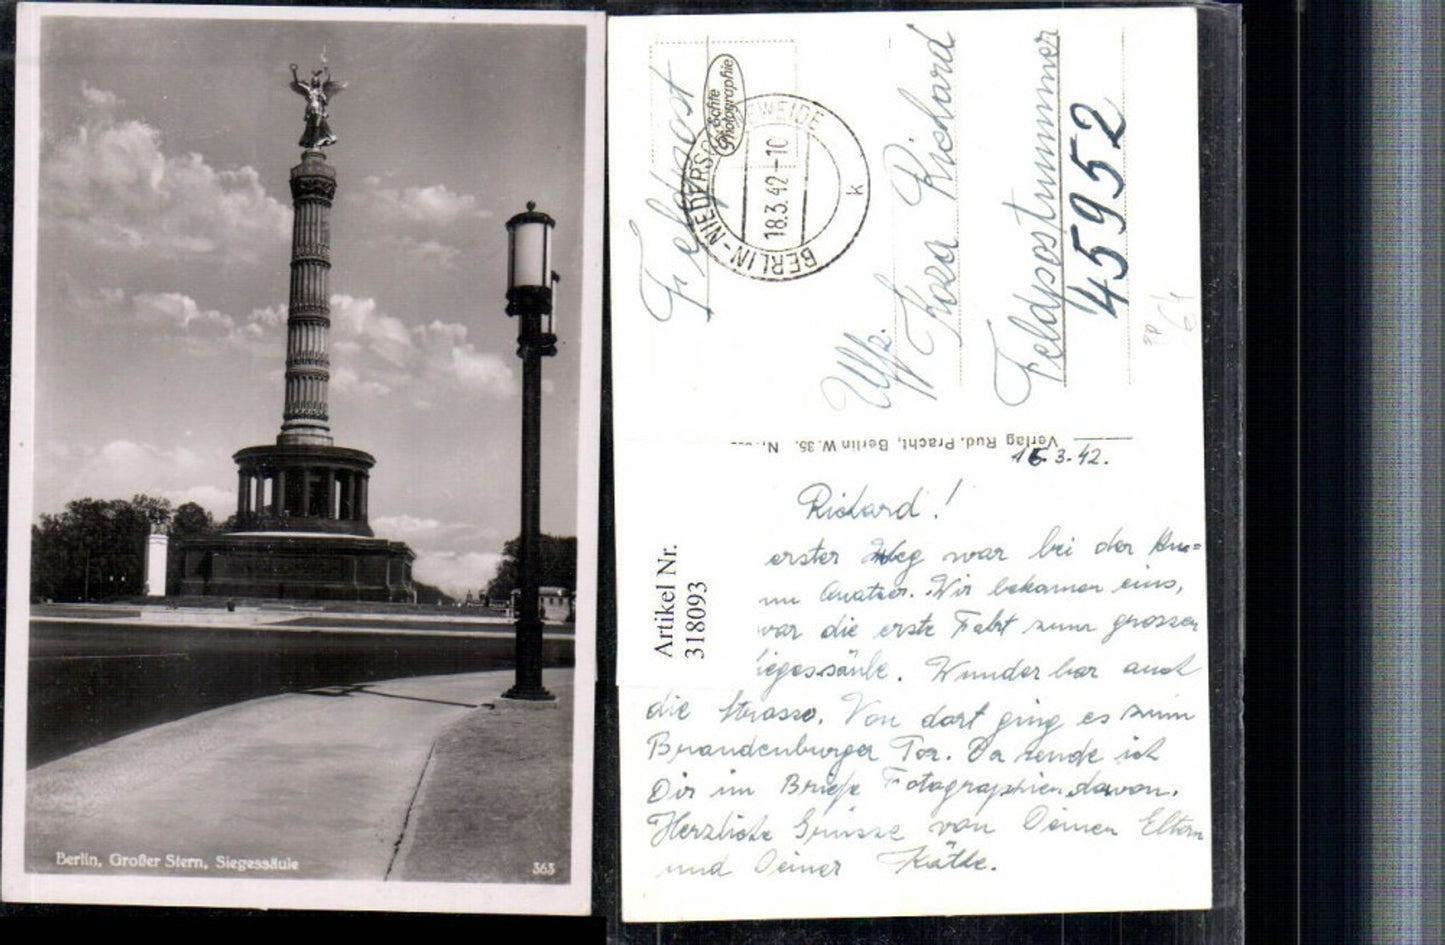 Berlin, Großer Stern, Siegessäule
363
Feldpost
Echte Photographie
BERLIN-NIEDERSCHÖNEWEIDE
18.3.42-10
k
Uffz.
Koza Richard
Feldpostnummer
45952
Verlag Rud. Pracht, Berlin W. 35. N
16.3.42.
Artikel Nr.
318093
Richard!
erster Weg war bei der
Wir bekamen eins,
war die erste Fahrt zum grossen
iegessäule. Wunderbar auch
die Strasse. Von dort ging es zum
Brandenburger Tor. Da sende ich
Dir im Briefe Fotographien davon.
Herzliche Grüsse von Deinen Eltern
und Deiner Käthe.